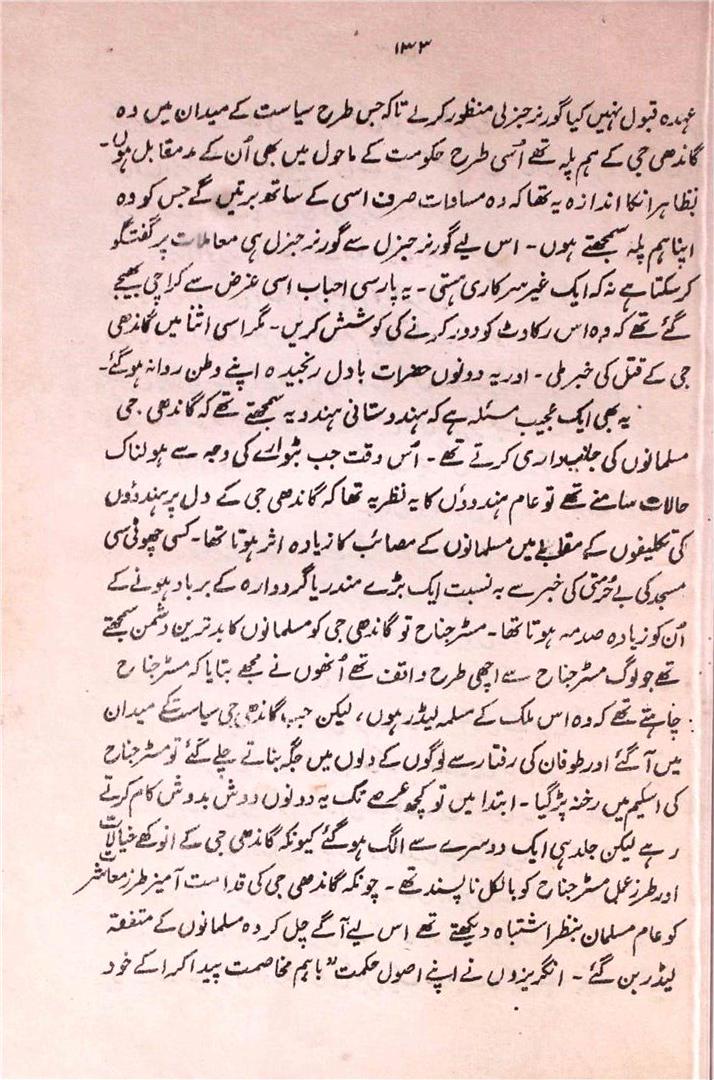 ۱۳۳
عہدہ قبول نہیں کیا گورنر جنرلی منظور کرلے تاکہ جس طرح سیاست کے میدان میں وہ
گاندھی جی کے ہم پلہ تھے اُسی طرح حکومت کے ماحول میں بھی اُن کے مدمقابل ہوں۔
بظاہر انکا اندازہ یہ تھا کہ وہ مساوات صرف اسی کے ساتھ برتیں گے جس کو وہ
اپنا ہم پلہ سمجھتے ہوں۔ اس لیے گورنر جنرل سے گورنر جنرل ہی معاملات پر گفتگو
کر سکتا ہے نہ کہ ایک غیر سرکاری ہستی۔ یہ پارسی احباب اسی غرض سے کراچی بھیجے
گئے تھے کہ وہ اس رکاوٹ کو دور کرنے کی کوشش کریں۔ مگر اسی اثنا میں گاندھی
جی کے قتل کی خبر ملی۔ اور یہ دونوں حضرات بادل رنجیدہ اپنے وطن روانہ ہوگئے۔
یہ بھی ایک عجیب مسئلہ ہے کہ ہندوستانی ہندو یہ سمجھتے تھے کہ گاندھی جی
مسلمانوں کی جانبداری کرتے تھے۔ اُس وقت جب بٹوارے کی وجہ سے ہولناک
حالات سامنے تھے تو عام ہندوؤں کا یہ نظریہ تھا کہ گاندھی جی کے دل پر ہندوؤں
کی تکلیفوں کے مقابلے میں مسلمانوں کے مصائب کا زیادہ اثر ہوتا تھا۔ کسی چھوٹی سی
مسجد کی بے حُرمتی کی خبر سے بہ نسبت ایک بڑے مندر یا گردوارہ کے برباد ہونے کے
اُن کو زیادہ صدمہ ہوتا تھا۔ مسٹر جناح تو گاندھی جی کو مسلمانوں کا بدترین دشمن سمجھتے
تھے جو لوگ مسٹر جناح سے اچھی طرح واقف تھے اُنھوں نے مجھے بتایا کہ مسٹر جناح
چاہتے تھے کہ وہ اس ملک کے مسلمہ لیڈر ہوں، لیکن جب گاندھی جی سیاست کے میدان
میں آگئے اور طوفان کی رفتار سے لوگوں کے دلوں میں جگہ بناتے چلے گئے تو مسٹر جناح
کی اسکیم میں رخنہ پڑ گیا۔ ابتدا میں تو کچھ عرصے تک یہ دونوں دوش بدوش کام کرتے
رہے لیکن جلد ہی ایک دوسرے سے الگ ہوگئے کیونکہ گاندھی جی کے انوکھے خیالات
اور طرز عمل مسٹر جناح کو بالکل ناپسند تھے۔ چونکہ گاندھی جی کی قدامت آمیز طرز معاشرت
کو عام مسلمان بنظر اشتباہ دیکھتے تھے اس لیے آگے چل کر وہ مسلمانوں کے متفقہ
لیڈر بن گئے۔ انگریزوں نے اپنے اصول حکمت "باہم مخاصمت پیدا کرا کے خود